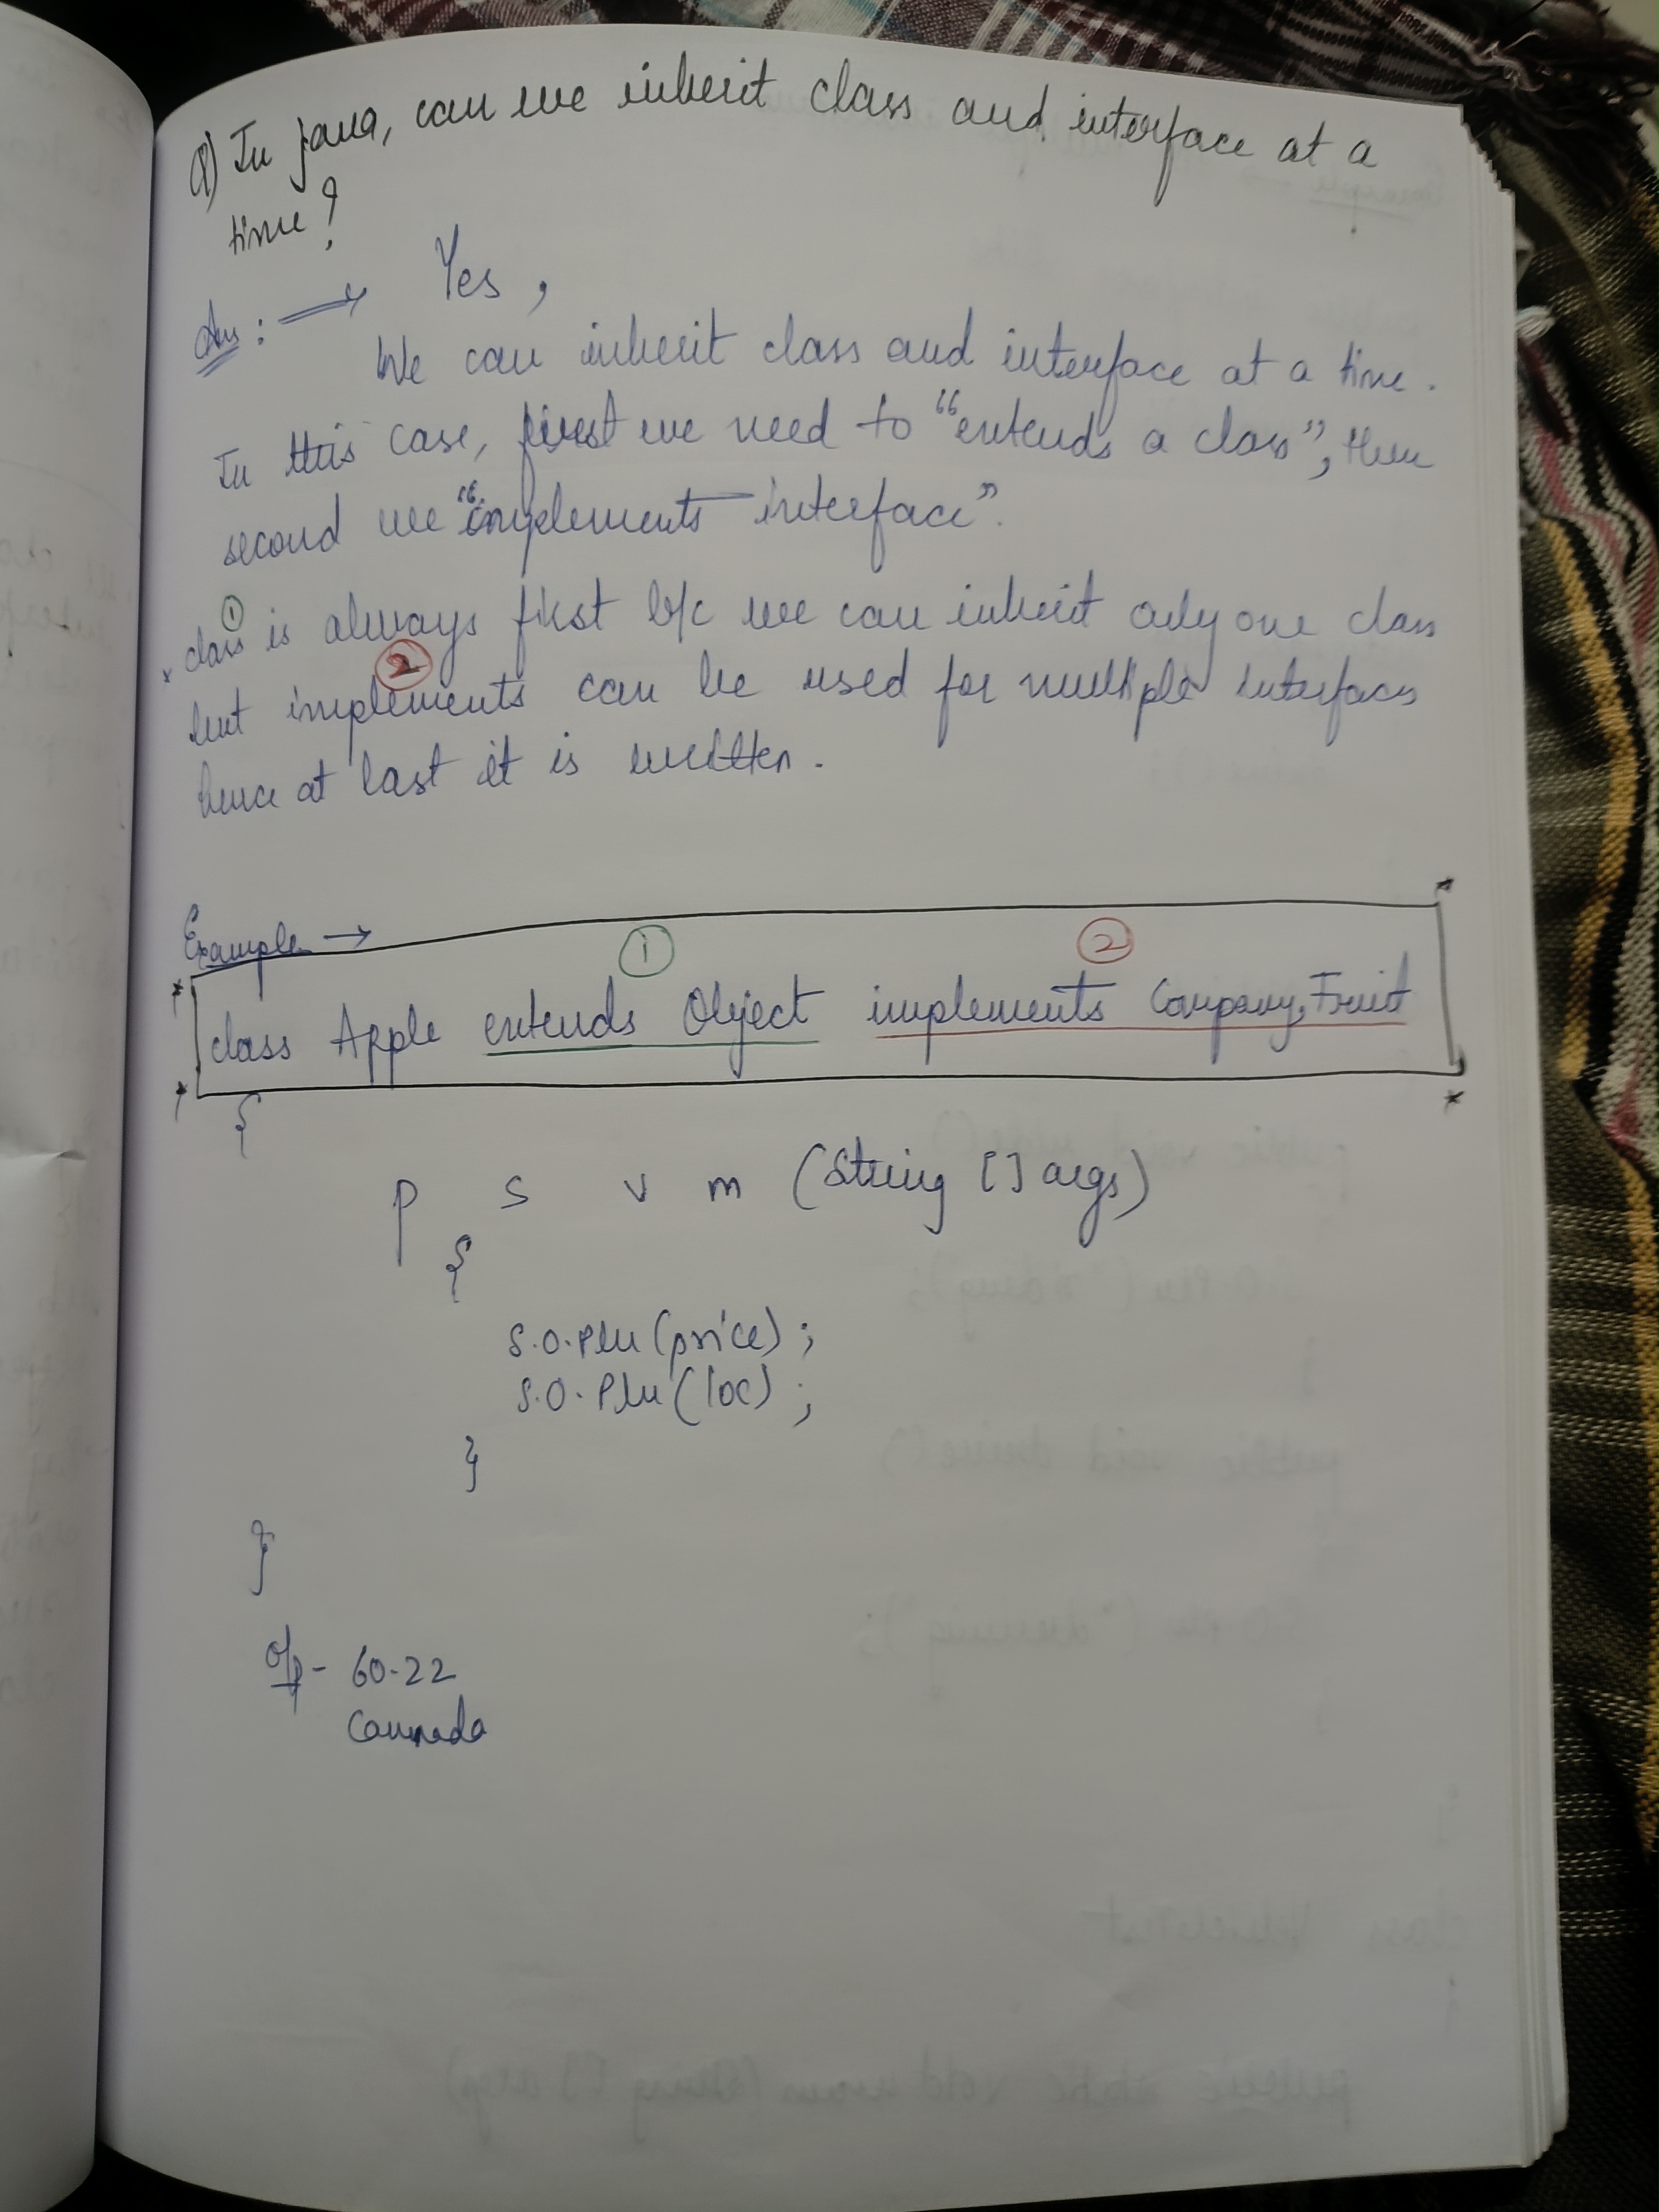 Q) In java, can we inherit class and interface at a
time?
Ans: → Yes,
We can inherit class and interface at a time.
In this case, first we need to "extends a class", then
second we "implements interface".
* class ① is always first b/c we can inherit only one class
but implements ② can be used for multiple interfaces
hence at last it is written.
Example →
① ②
class Apple extends Object implements Company, Fruit
{
p s v m (String [] args)
{
S.O.Pln (price);
S.O.Pln (loc);
}
}
o/p - 60.22
Cannada